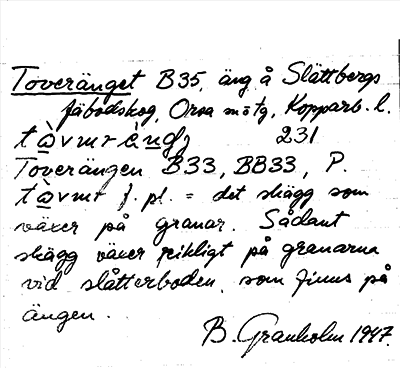 Toveränget B35, äng å Slättbergs
fäbodskog, Orsa mötg, Kopparb. l.
231
Toverängen B33, BB33, P.
f. pl. = det skägg som
växer på granar. Sådant
skägg växer rikligt på granarna
vid slåtterboden, som finns på
ängen.
B. Granholm 1947.